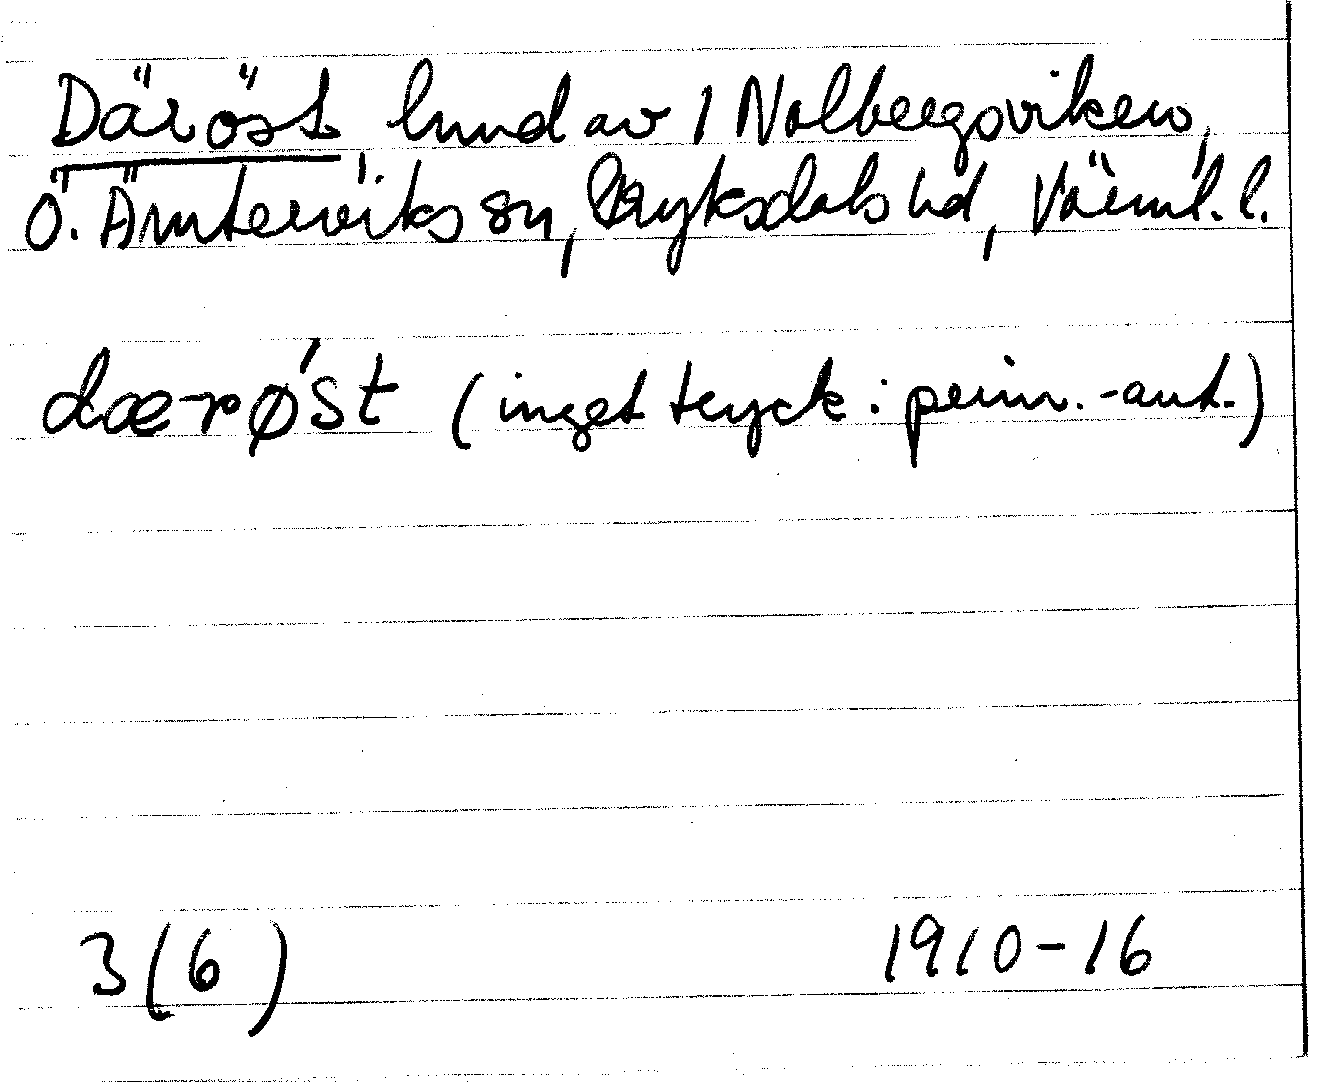 Däröst hmd av 1 Nolbergsviken,
Ö. Ämterviks sn, Fryksdals hd, Värml. l.
dærø'st (inget tryck: prim.-ant.)
3(6) 1910-16